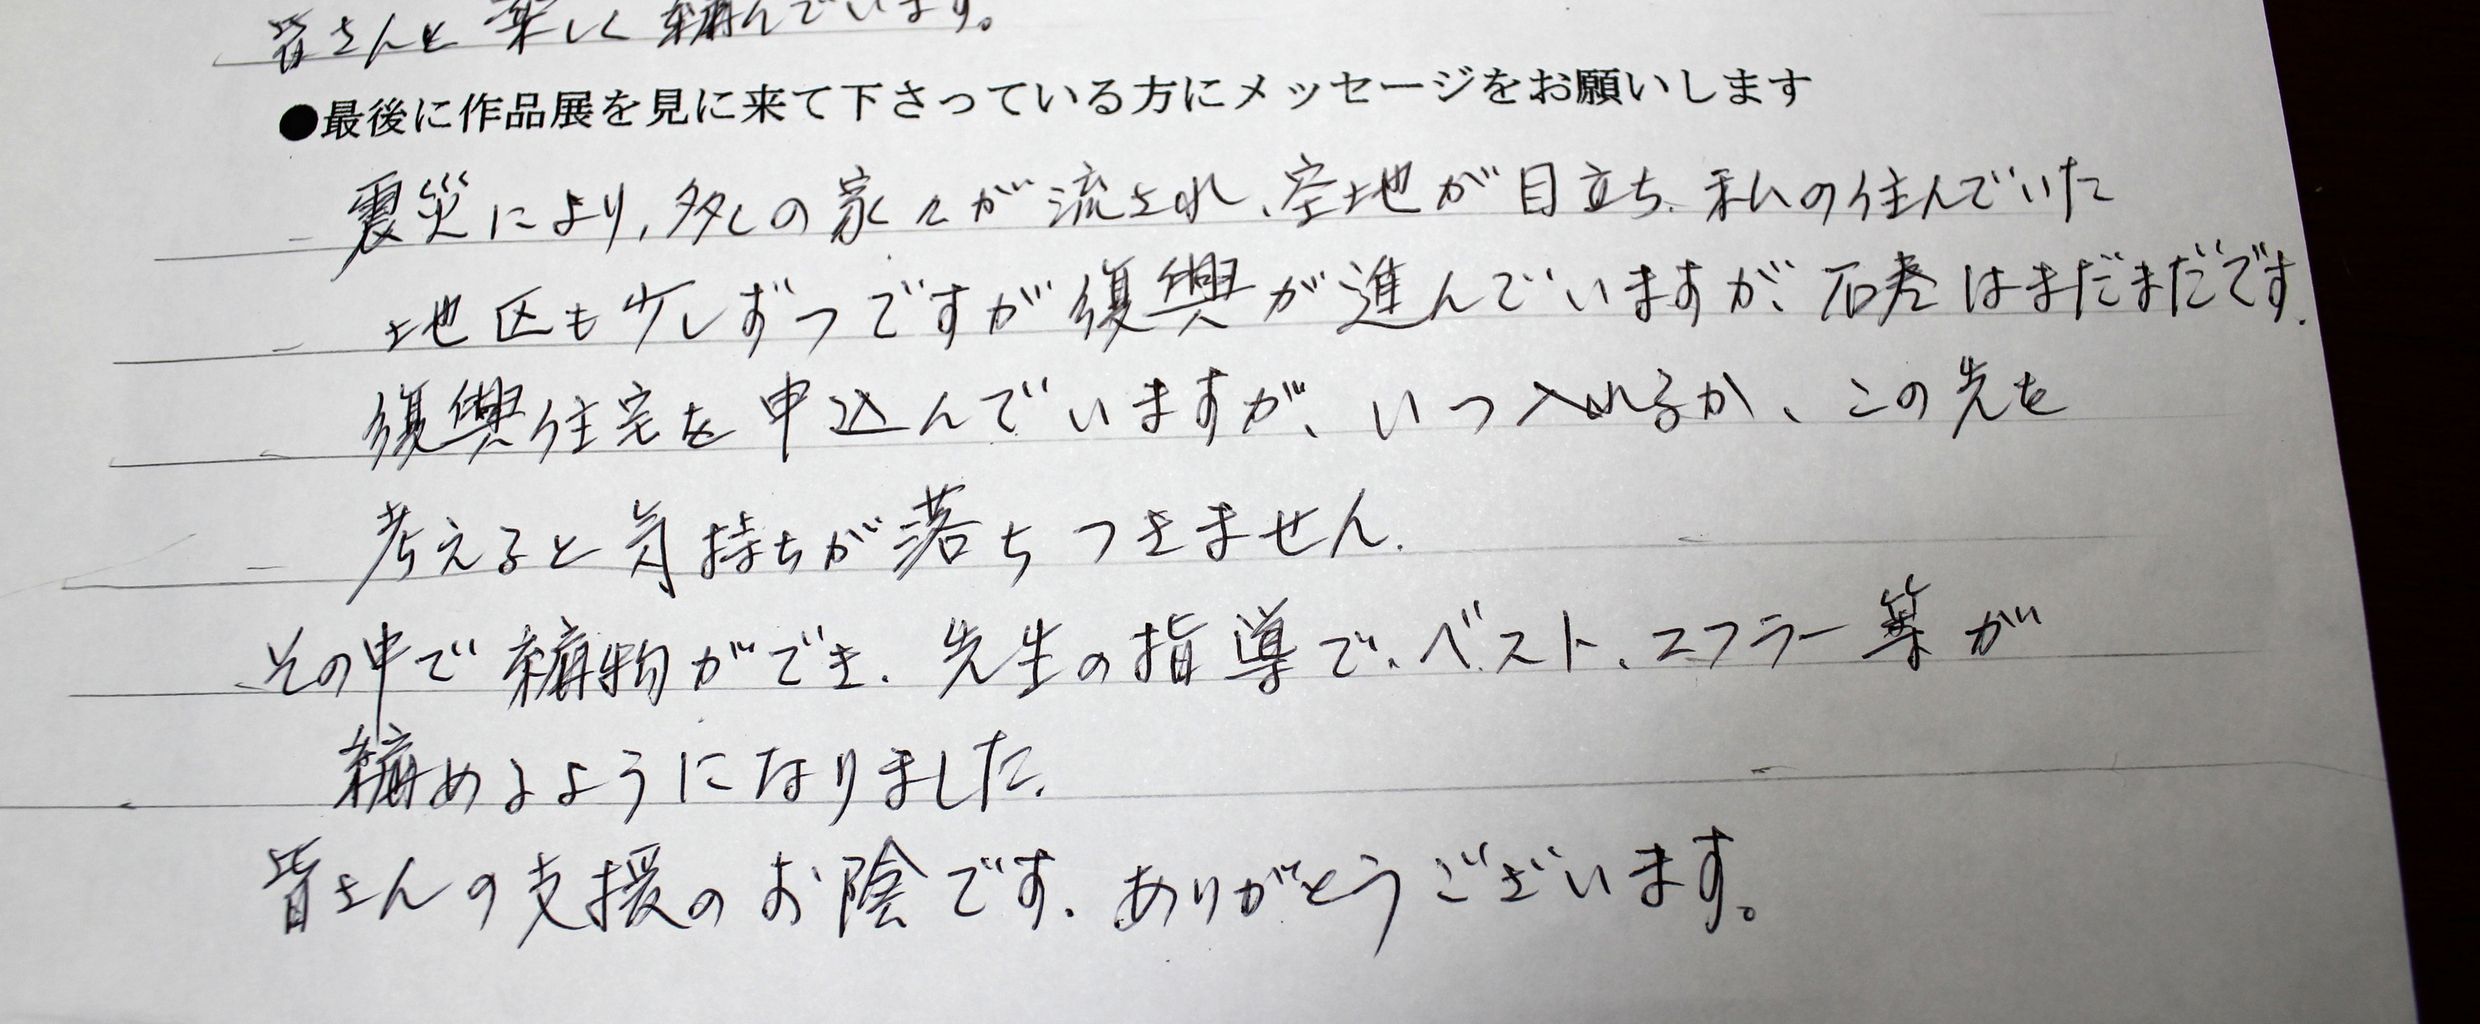 皆さんと楽しく編んでいます。
●最後に作品展を見に来て下さっている方にメッセージをお願いします
震災により、多くの家々が流され、空地が目立ち、私の住んでいた
地区も少しずつですが復興が進んでいますが、石巻はまだまだです.
復興住宅を申込んでいますが、いつ入れるか、この先を
考えると気持ちが落ちつきません.
その中で編物ができ、先生の指導で、ベスト、マフラー等が
編めるようになりました.
皆さんの支援のお陰です. ありがとうございます。